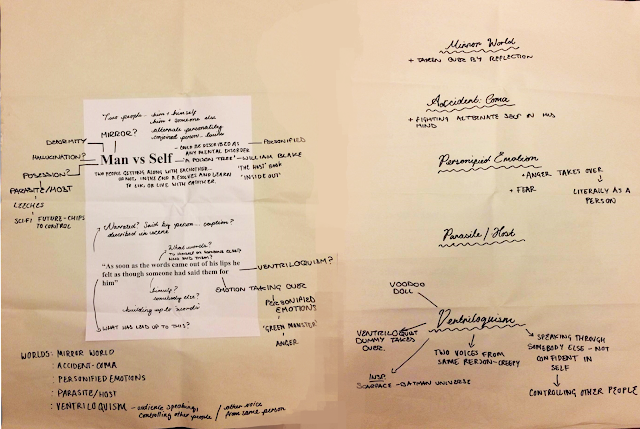 "Two people - him + himself
him + someone else
MIRROR?
alternate personality
conjoined person - twins
DEFORMITY
HALLUCINATION?
POSSESSION?
PARASITE/HOST
LEECHES
SCIFI FUTURE - CHIPS
TO CONTROL
Man vs Self
COULD BE DESCRIBED AS
ANY MENTAL DISORDER
PERSONIFIED
'A POISON TREE' - WILLIAM BLAKE
'THE HOST' BOOK
"INSIDE OUT"
TWO PEOPLE GETTING ALONG WITH EACHOTHER
OR NOT. IN THE END RESOLVES AND LEARN
TO LIVE WITH
Narrated? Said by person... caption?
described in scene
What words?
to himself or someone else?
who said them?
"As soon as the words came out of his lips he
felt as though someone had said them for
him"
VENTRILOQUISM?
himself?
somebody else?
EMOTION TAKING OVER
PERSONIFIED
EMOTIONS
'GREEN MONSTER'
ANGER
building up to words
WHAT HAS LEAD UP TO THIS?
WORLDS: MIRROR WORLD
: ACCIDENT-COMA
: PERSONIFIED EMOTIONS
: PARASITE/HOST
: VENTRILOQUISM - audience speaking / other voice
controlling other people / from same person
Mirror World
+ TAKEN OVER BY REFLECTION
Accident: Coma
+ FIGHTING ALTERNATE SELF IN HIS
MIND
Personified Emotion
+ ANGER TAKES OVER
LITERALLY AS A
PERSON
+ FEAR
Parasite/Host
VOODOO
DOLL
Ventriloquism
VENTRILOQUIST
DUMMY TAKES
OVER.
TWO VOICES FROM
SAME PERSON - CREEPY
SPEAKING THROUGH
SOMEBODY ELSE - NOT
CONFIDENT IN
SELF
CONTROLLING OTHER PEOPLE
INSP
SCARFACE - BATMAN UNIVERSE